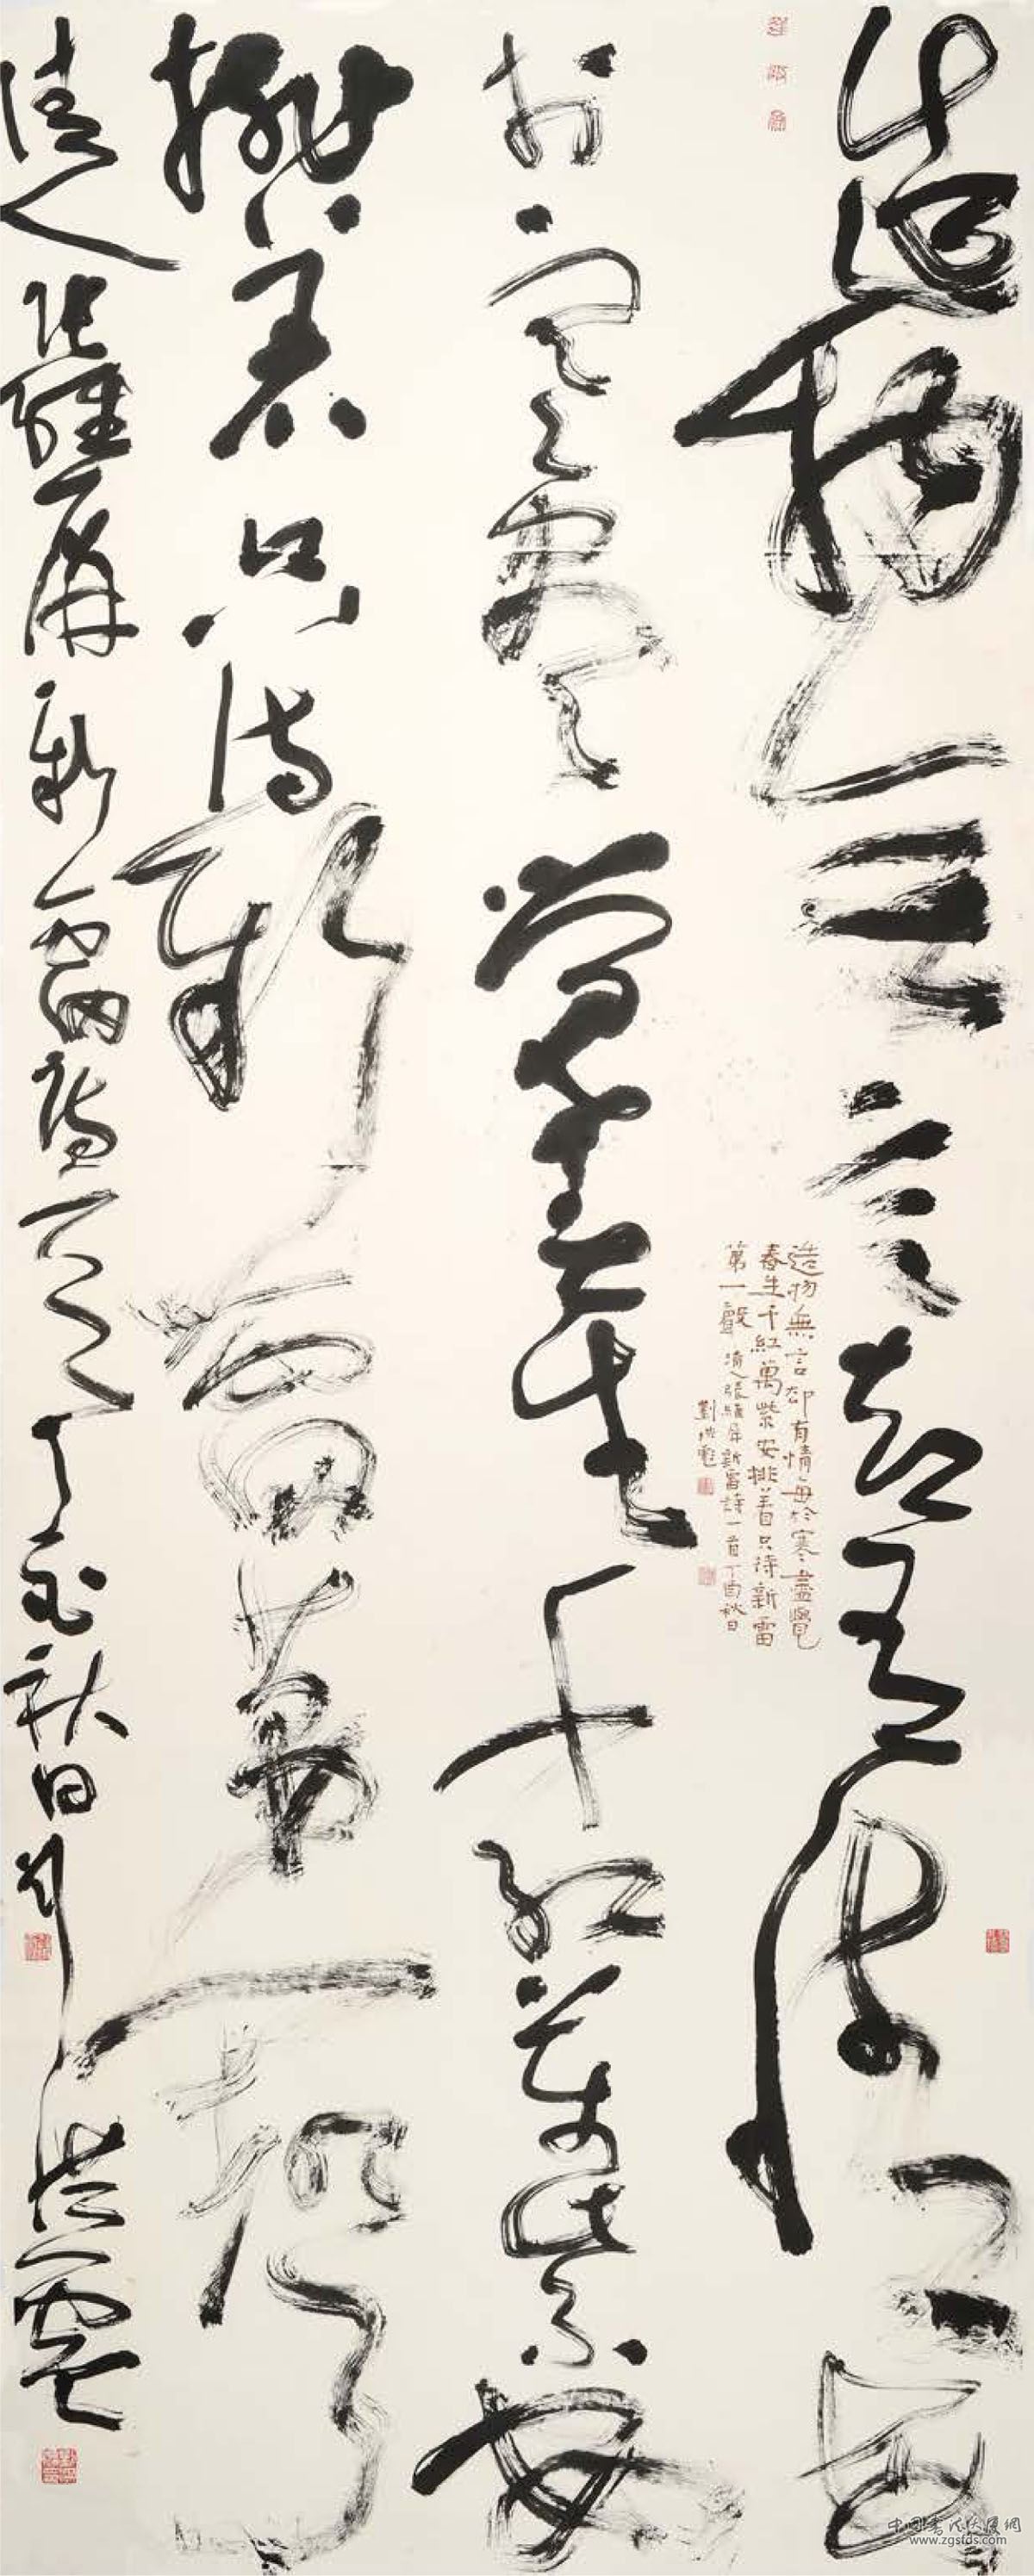 造物無言却有情每
於寒盡覺春生千紅萬紫安
排着只待新雷第一聲
清人張維屏新雷詩一首丁酉秋日劉洪彪
造物無言却有情每於寒盡覺
春生千紅萬紫安排着只待新雷
第一聲 清人張維屏新雷詩一首丁酉秋日
劉洪彪
www.zgsfds.com